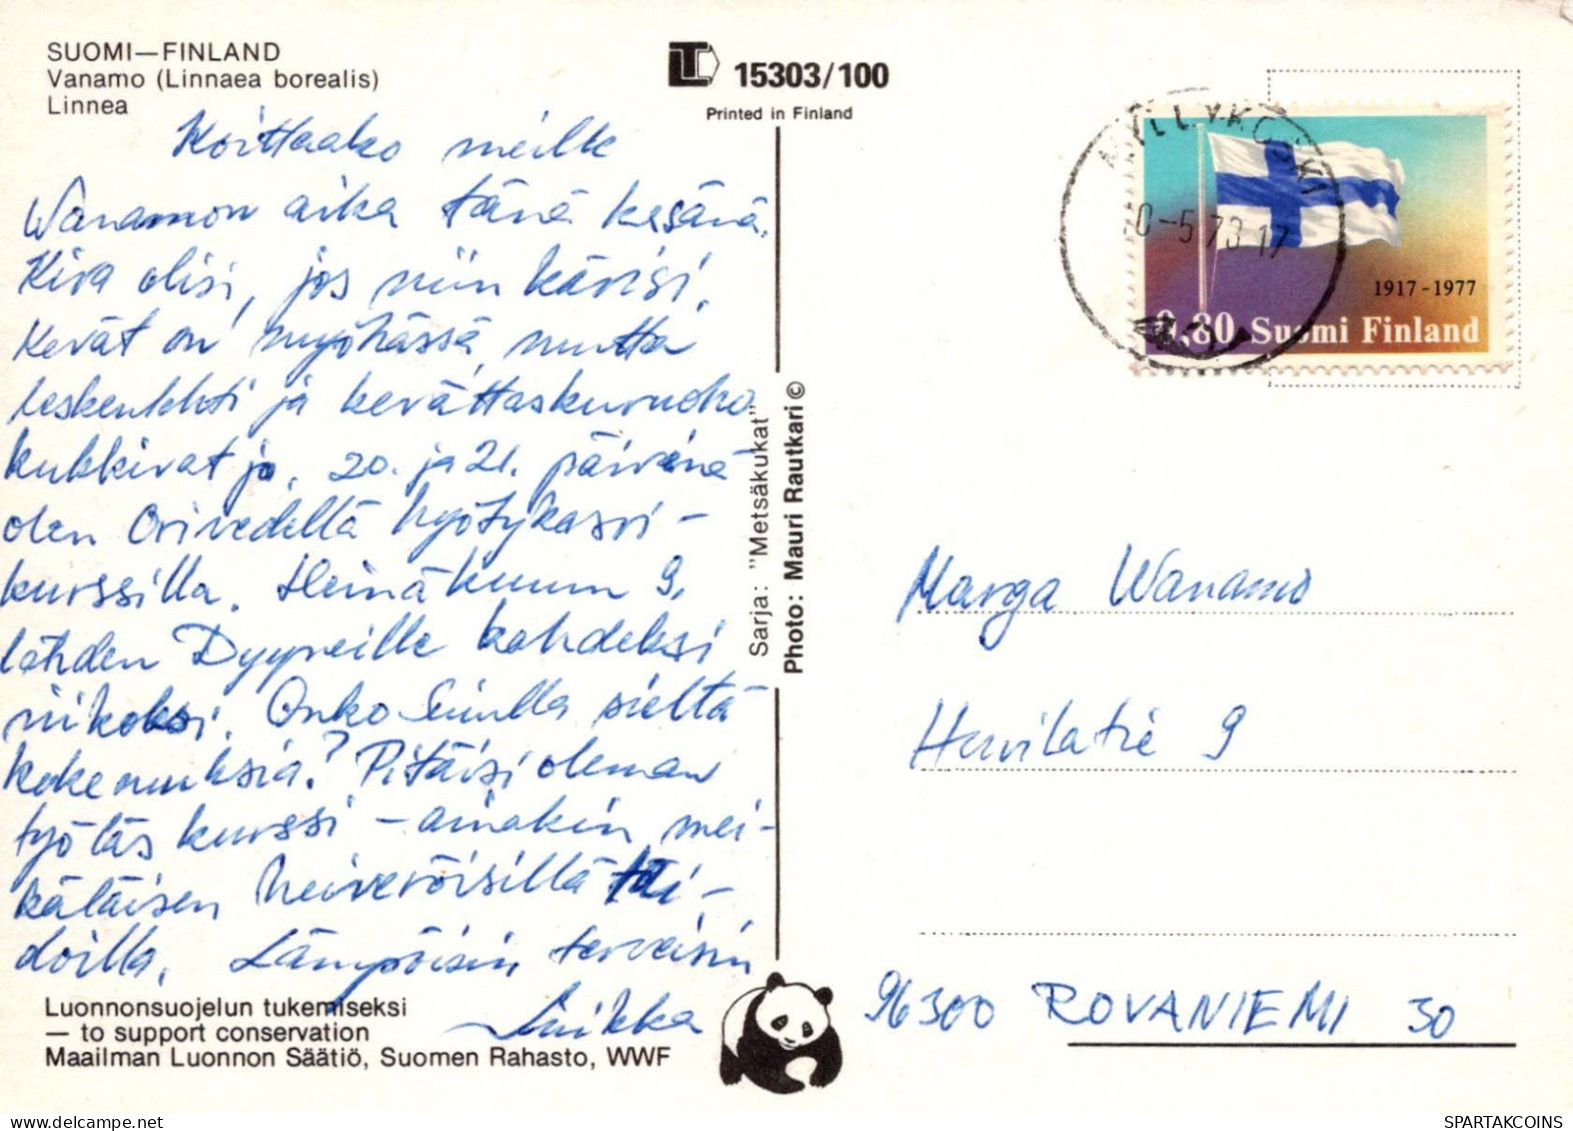 SUOMI—FINLAND
Vanamo (Linnaea borealis)
Linnea
15303/100
Printed in Finland
Koittaako meille
Wanamon aika tänä kesänä.
Kiva olisi, jos niin kävisi.
Kevät on myöhässä, mutta
leskenlehti ja kevättaskuruoho
kukkivat jo. 20. ja 21. päivinä
olen Orivedellä hyötykasvi-
kurssilla. Heinäkuun 9.
lähden Dyyneille kahdeksi
viikoksi. Onko Sinulla sieltä
kokemuksia? Pitäisi oleman
työläs kurssi – ainakin mei-
käläisen heiveröisillä tai-
doilla. Lämpöisin terveisin
Luonnonsuojelun tukemiseksi
— to support conservation
Maailman Luonnon Säätiö, Suomen Rahasto, WWF
Sarja: "Metsäkukat"
Photo: Mauri Rautkari ©
MYLLYKOSKI
10-5 78 17
1917-1977
0,80 Suomi Finland
Marga Wanamo
Havilatie 9
96300 ROVANIEMI 30
SPARTAKCOINS
https://www.delcampe.net